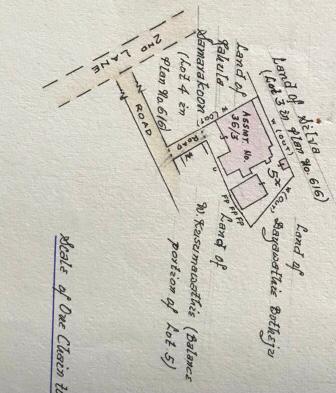 2ND LANE
ROAD
ROAD
Land of Silva
(Lot 3 in Plan No. 616)
Land of
Kakula
Samarakoon
(Lot 4 in
Plan No. 616)
ASSMT. No.
36/3
Land of
Dayawathie Botheju
Land of
W. Kusumawathie (Balance
portion of Lot 5)
Scale of One Chain to